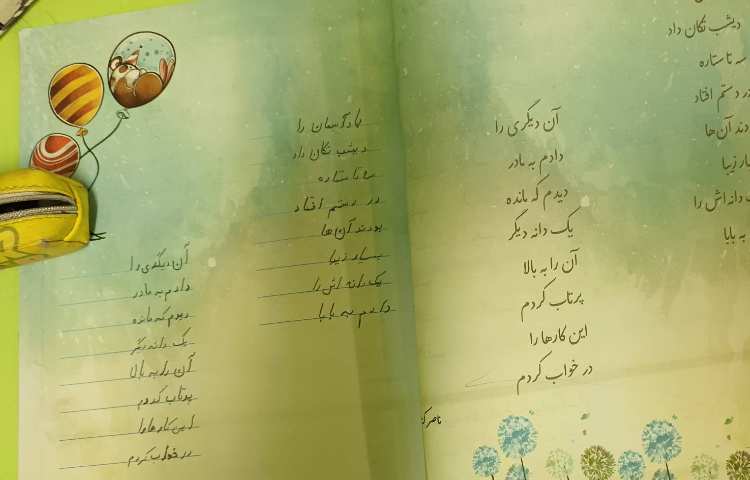 دیشب تکان داد
سه تا ستاره
دستم افتاد
آن‌ها
زیبا
دانه‌اش را
به بابا
آن دیگری را
دادم به مادر
دیدم که مانده
یک دانه دیگر
آن را به بالا
پرتاب کردم
این کارها را
در خواب کردم
ناصر
باد آسمان را
دیشب تکان داد
سه تا ستاره
در دستم افتاد
بودند آن‌ها
بسیار زیبا
یک دانه اش را
دادم به بابا
آن دیگری را
دادم به مادر
دیدم که مانده
یک دانه دیگر
آن را به بالا
پرتاب کردم
این کارها را
در خواب کردم